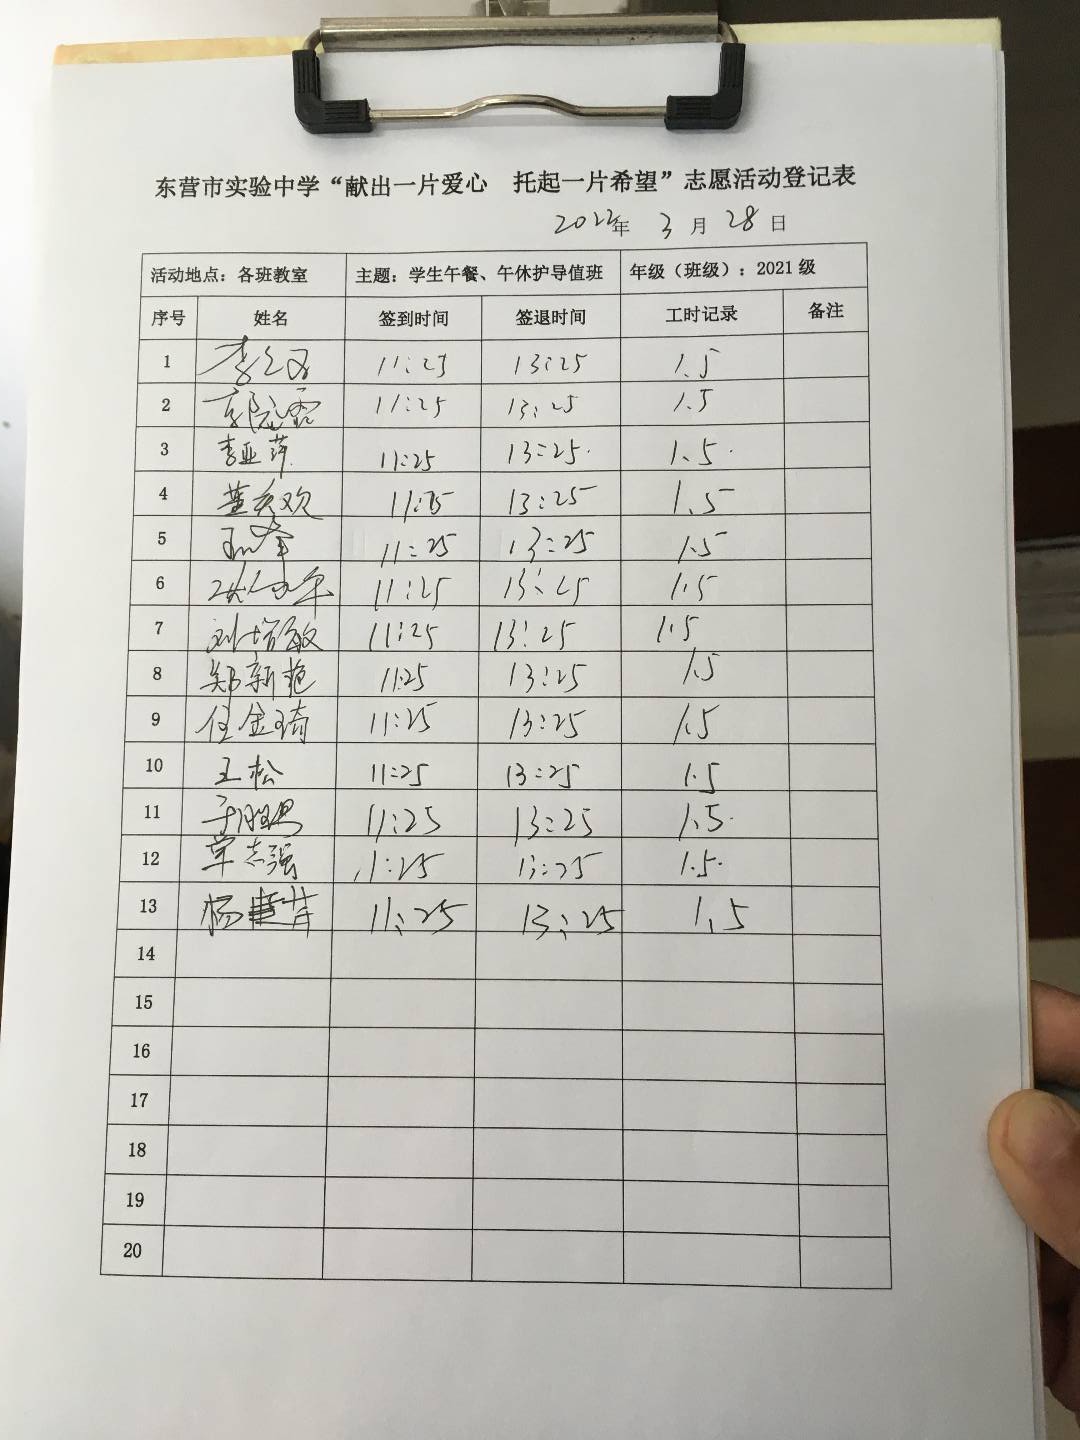 东营市实验中学“献出一片爱心 托起一片希望”志愿活动登记表
2022年 3月 28日
活动地点：各班教室 主题：学生午餐、午休护导值班 年级（班级）：2021级
序号 姓名 签到时间 签退时间 工时记录 备注
1 11:25 13:25 1.5
2 11:25 13:25 1.5
3 李亚萍 11:25 13:25 1.5
4 11:25 13:25 1.5
5 11:25 13:25 1.5
6 11:25 13:25 1.5
7 刘培敏 11:25 13:25 1.5
8 郑新艳 11:25 13:25 1.5
9 任金琦 11:25 13:25 1.5
10 王松 11:25 13:25 1.5
11 11:25 13:25 1.5
12 单志强 11:25 13:25 1.5
13 杨 11:25 13:25 1.5
14
15
16
17
18
19
20